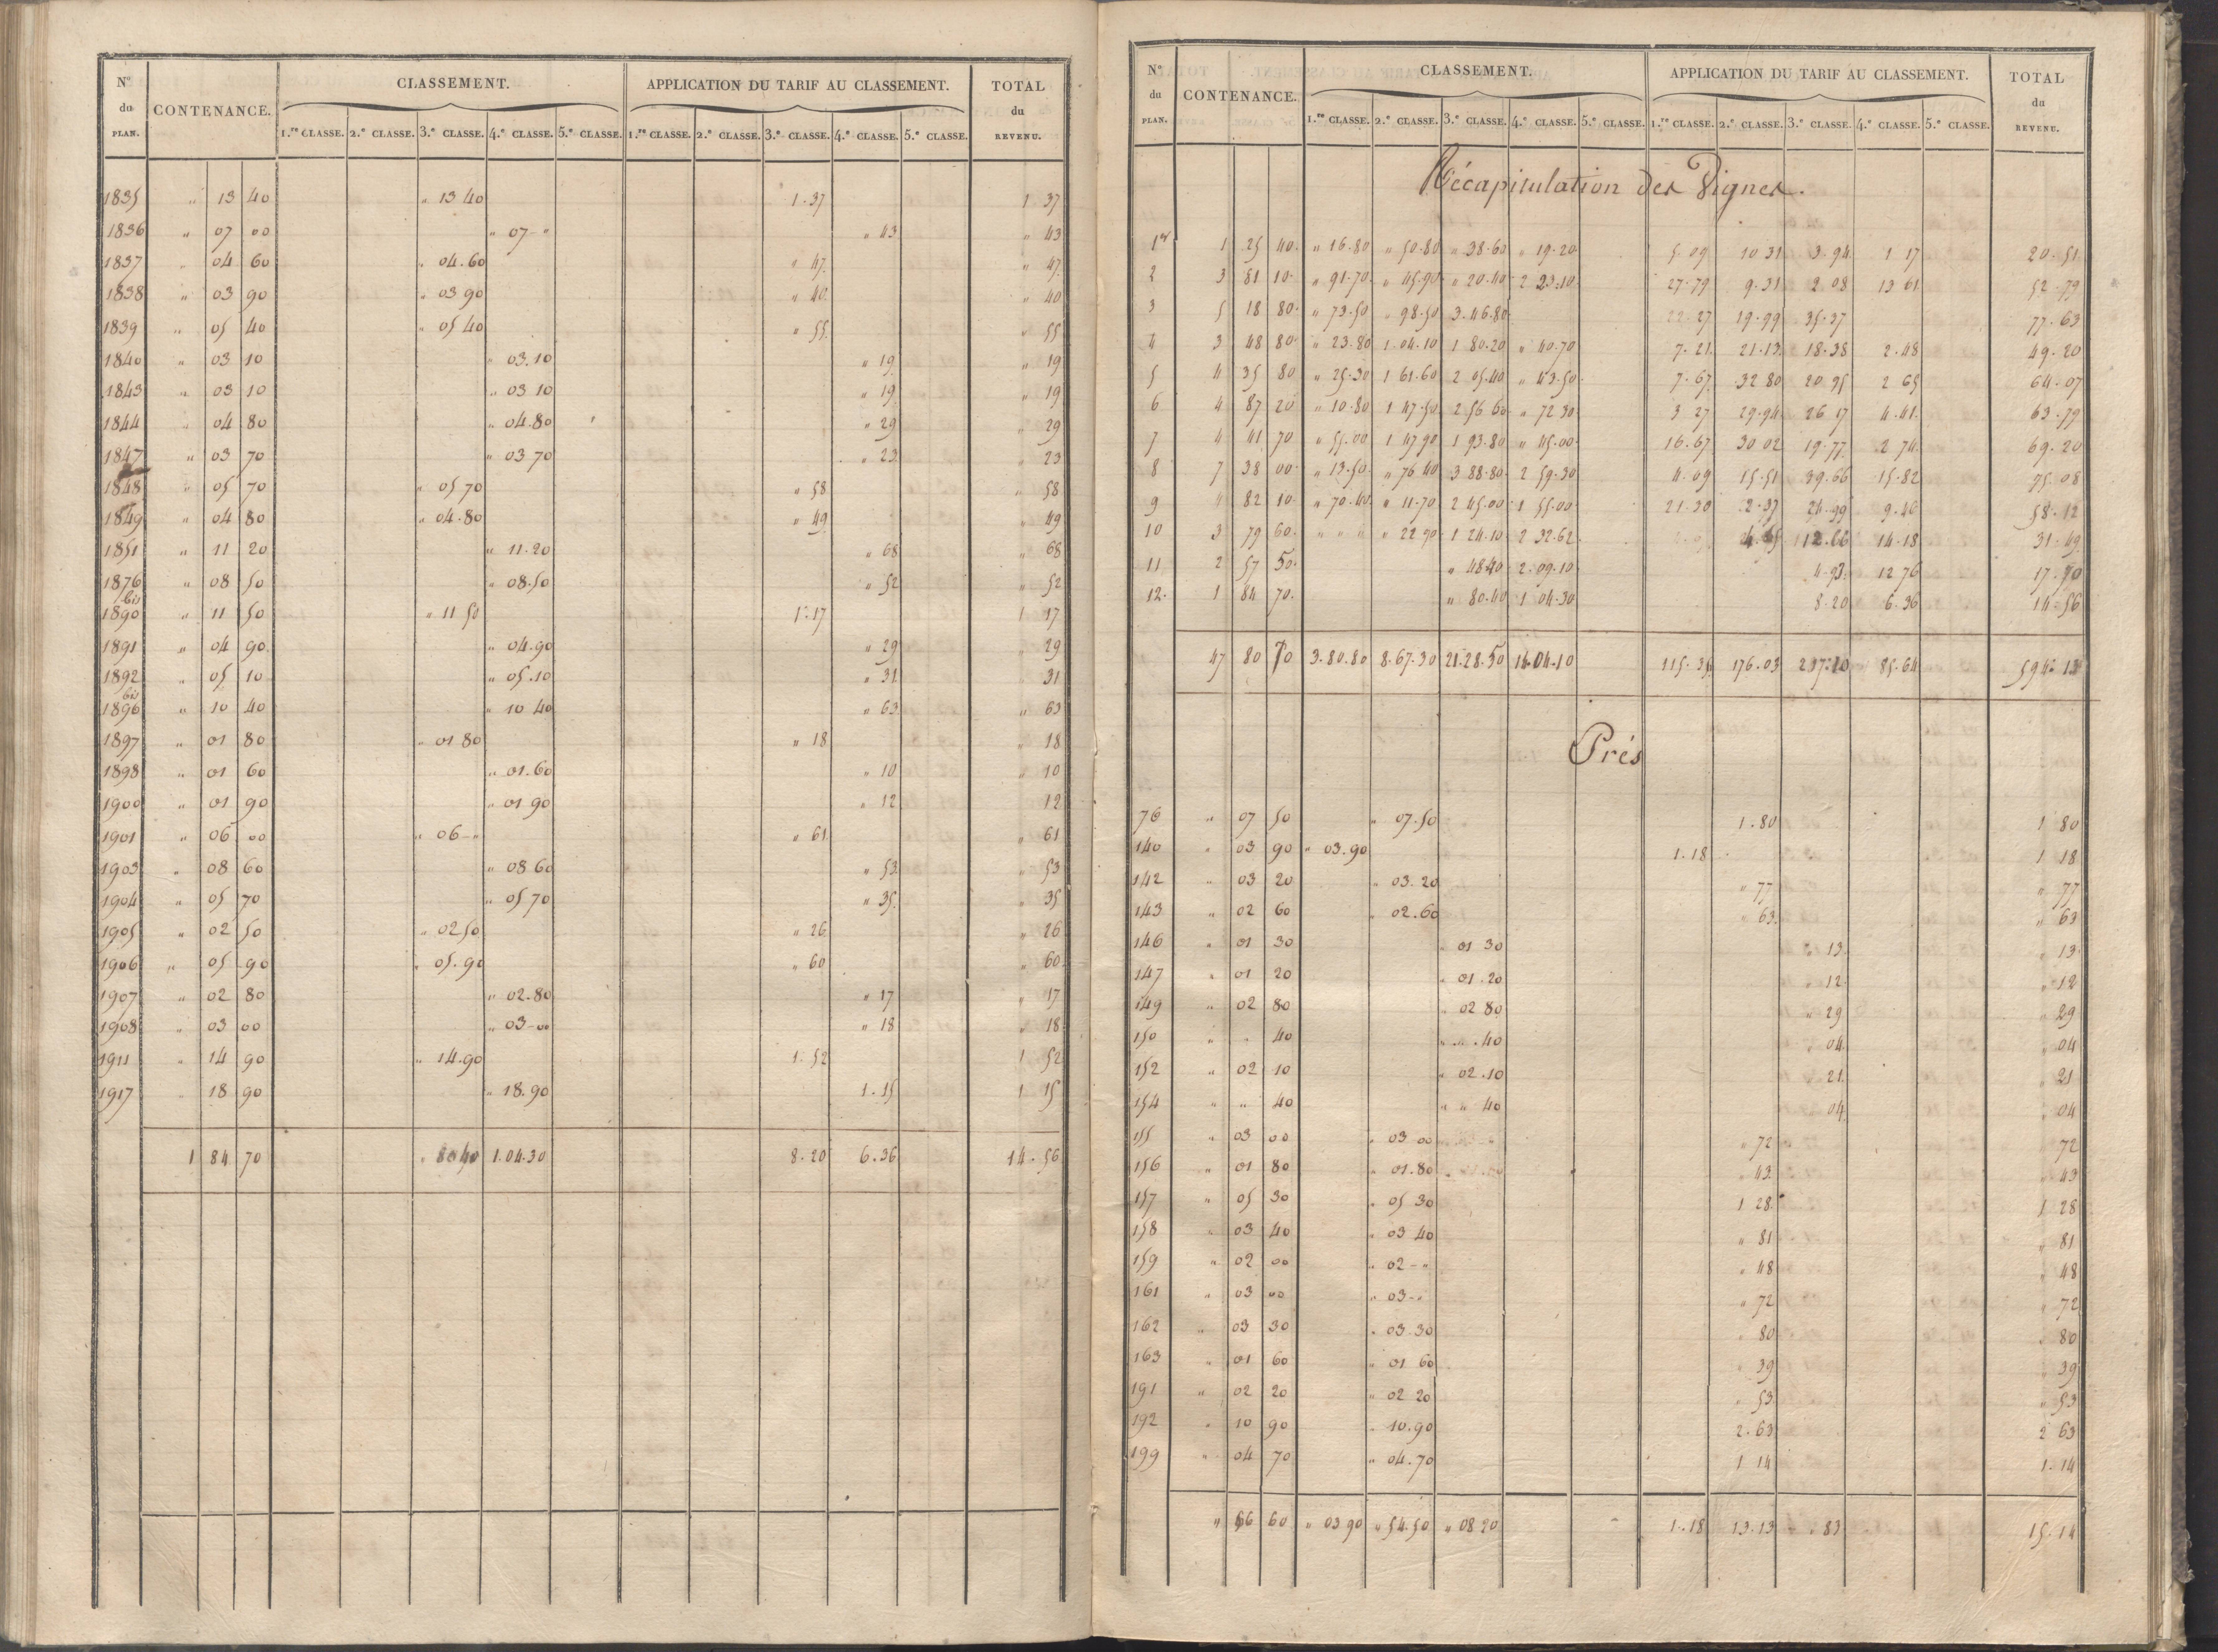 N.º du PLAN. CONTENANCE. CLASSEMENT. APPLICATION DU TARIF AU CLASSEMENT. TOTAL du REVENU.
1.re CLASSE. 2.e CLASSE. 3.e CLASSE. 4.e CLASSE. 5.e CLASSE. 1.re CLASSE. 2.e CLASSE. 3.e CLASSE. 4.e CLASSE. 5.e CLASSE.
1835 " 13 40 " 13 40 1.37 1 37
1836 " 07 00 " 07 - " " 43 " 43
1837 " 04 60 " 04.60 " 47 " 47
1838 " 03 90 " 03 90 " 40 " 40
1839 " 05 40 " 05 40 " 55 " 55
1840 " 03 10 " 03.10 " 19 " 19
1843 " 03 10 " 03 10 " 19 " 19
1844 " 04 80 " 04.80 " 29 " 29
1847 " 03 70 " 03 70 " 23 " 23
1848 " 05 70 " 05 70 " 58 " 58
1849 " 04 80 " 04.80 " 49 " 49
1851 " 11 20 " 11.20 " 68 " 68
1876 " 08 50 " 08.50 " 52 " 52
bis
1890 " 11 50 " 11 50 1.17 1 17
1891 " 04 90 " 04.90 " 29 " 29
1892 " 05 10 " 05.10 " 31 " 31
bis
1896 " 10 40 " 10 40 " 63 " 63
1897 " 01 80 " 01 80 " 18 " 18
1898 " 01 60 " 01.60 " 10 " 10
1900 " 01 90 " 01 90 " 12 " 12
1901 " 06 00 " 06 - " " 61 " 61
1903 " 08 60 " 08 60 " 53 " 53
1904 " 05 70 " 05 70 " 35 " 35
1905 " 02 50 " 02 50 " 26 " 26
1906 " 05 90 " 05.90 " 60 " 60
1907 " 02 80 " 02.80 " 17 " 17
1908 " 03 00 " 03 - 00 " 18 " 18
1911 " 14 90 " 14.90 1.52 1 52
1917 " 18 90 " 18.90 1.15 1 15
1 84 70 " 80 40 1.04.30 8.20 6.36 14.56
N.º du PLAN. CONTENANCE. CLASSEMENT. APPLICATION DU TARIF AU CLASSEMENT. TOTAL du REVENU.
1.re CLASSE. 2.e CLASSE. 3.e CLASSE. 4.e CLASSE. 5.e CLASSE. 1.re CLASSE. 2.e CLASSE. 3.e CLASSE. 4.e CLASSE. 5.e CLASSE.
Récapitulation des Vignes.
1er 1 25 40 " 16.80 " 50.80 " 38.60 " 19.20 5.09 10 31 3.94 1 17 20.51
2 3 81 10 " 91.70 " 45.90 " 20.40 2 23.10 27.79 9.31 2 08 13 61 52.79
3 5 18 80 " 73.50 " 98.50 3.46.80 22.27 19.99 35.37 77.63
4 3 48 80 " 23.80 1.04.10 1 80.20 " 40.70 7.21 21.13 18.38 2.48 49.20
5 4 35 80 " 25.30 1 61.60 2 05.40 " 43.50 7.67 32 80 20 95 2 65 64.07
6 4 87 20 " 10.80 1 47.50 2 56 60 " 72 30 3 27 29.94 26 17 4.41 63.79
7 4 41 70 " 55.00 1 47 90 1 93.80 " 45.00 16.67 30 02 19.77 2 74 69.20
8 7 38 00 " 13.50 " 76 40 3 88.80 2 59.30 4.09 15.51 39.66 15.82 75.08
9 4 82 10 " 70.40 " 11.70 2 45.00 1 55.00 21.30 2.37 24.99 9.46 58.12
10 3 79 60 " " " " 22 90 1 24.10 2 32.62 4.65 12.66 14.18 31.49
11 2 57 50 " 48 40 2.09.10 4.93 12 76 17.70
12. 1 84 70 " 80.40 1 04.30 8.20 6.36 14.56
47 80 70 3.80.80 8.67.30 21.28.50 14.04.10 115.35 176.03 217.10 85.64 594.13
Prés
76 " 07 50 " 07.50 1.80 1 80
140 " 03 90 " 03.90 1.18 1 18
142 " 03 20 " 03.20 " 77 " 77
143 " 02 60 " 02.60 " 63 " 63
146 " 01 30 " 01 30 " 13 " 13
147 " 01 20 " 01.20 " 12 " 12
149 " 02 80 " 02 80 " 29 " 29
150 " " 40 " " 40 " 04 " 04
152 " 02 10 " 02.10 " 21 " 21
154 " " 40 " " 40 " 04 " 04
155 " 03 00 " 03 00 " 72 " 72
156 " 01 80 " 01.80 " 43 " 43
157 " 05 30 " 05 30 1 28 1 28
158 " 03 40 " 03 40 " 81 " 81
159 " 02 00 " 02 - " " 48 " 48
161 " 03 00 " 03 - " " 72 " 72
162 " 03 30 " 03.30 " 80 " 80
163 " 01 60 " 01 60 " 39 " 39
191 " 02 20 " 02 20 " 53 " 53
192 " 10 90 " 10.90 2.63 2 63
199 " 04 70 " 04.70 1 14 1.14
" 66 60 " 03 90 " 54.50 " 08 20 1.18 13.13 " 83 15.14